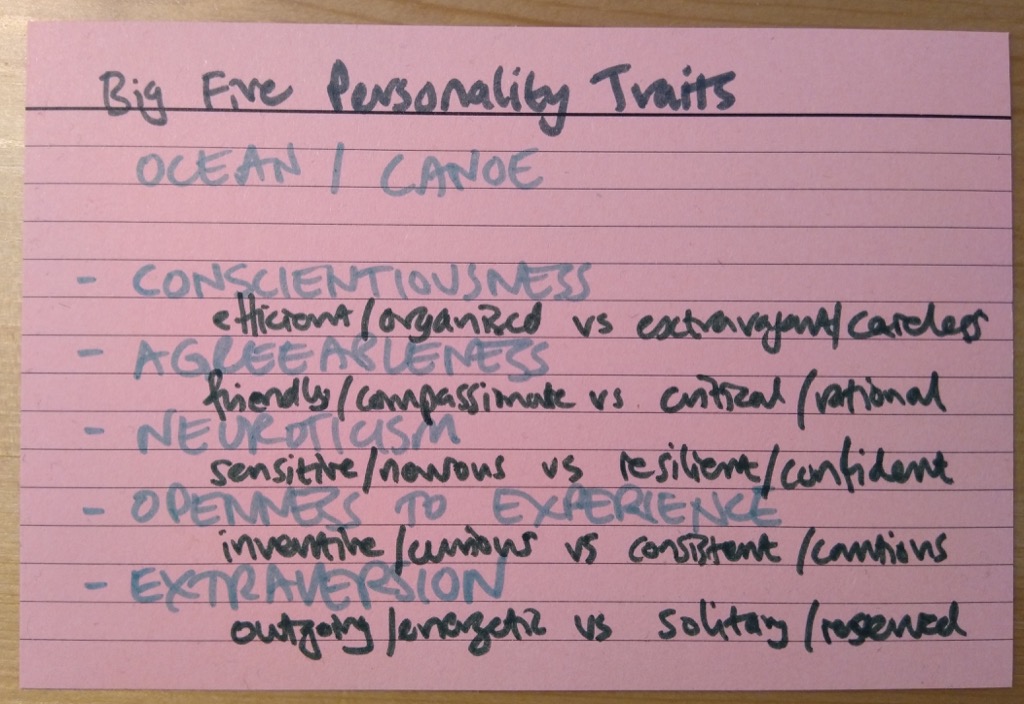 Big Five Personality Traits
OCEAN / CANOE
- CONSCIENTIOUSNESS
efficient/organized vs extravagant/careless
- AGREEABLENESS
friendly/compassionate vs critical/rational
- NEUROTICISM
sensitive/nervous vs resilient/confident
- OPENNESS TO EXPERIENCE
inventive/curious vs consistent/cautious
- EXTRAVERSION
outgoing/energetic vs solitary/reserved